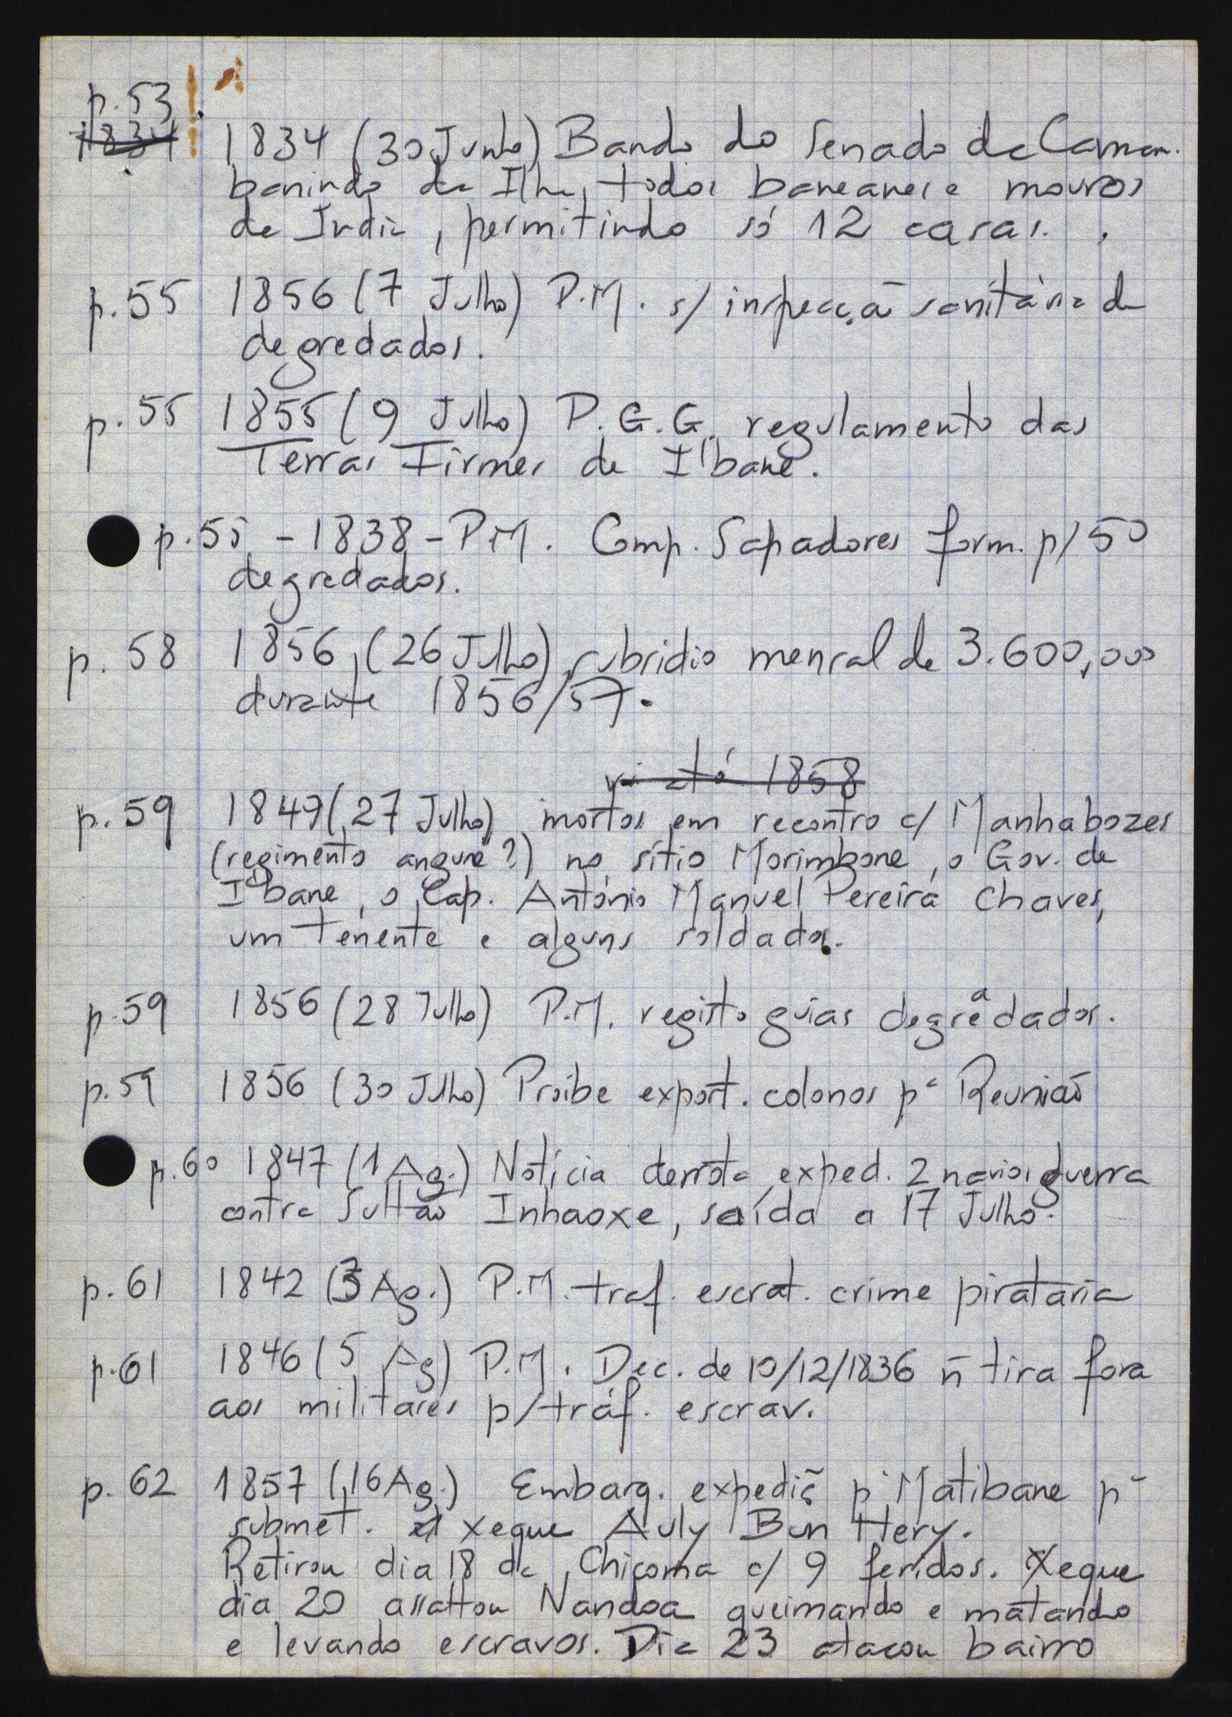 p.53
1834 1834 (30 Junho) Bando do Senado da Camar.
banindo da Ilha, todos baneanes e mouros
de India, permitindo só 12 casas.
p.55 1856 (7 Julho) P.M. s/ inspecçã sanitária de
degredados.
p.55 1855 (9 Julho) P.G.G. regulamento das
Terras Firmes de I'bane.
p.55 - 1838 - P.M. Comp. Sapadores form. p/ 50
degredados.
p.58 1856, (26 Julho) subsidio mensal de 3.600,000
durante 1856/57.
até 1858
p.59 1849 (27 Julho) mortos em recontro c/ Manhabozes
(regimento angune?) no sítio Morimbone, o Gov. de
I'bane, o Cap. António Manuel Pereira Chaves,
um tenente e alguns soldados.
p.59 1856 (28 Julho) P.M. registo guias degredados.
p.59 1856 (30 Julho) Proibe export. colonos pª Reunião
p.60 1847 (1 Ag.) Notícia derrota exped. 2 navios guerra
contra Sultão Inhaoxe, saída a 17 Julho.
p.61 1842 (3 Ag.) P.M. traf. escrat. crime pirataria
p.61 1846 (5 Ag) P.M. Dec. de 10/12/1836 ñ tira fora
aos militares p/ tráf. escrav.
p.62 1857 (16 Ag.) Embarq. expediç̃ pª Matibane pª
submet. xeque Auly Bun Hery.
Retirou dia 18 de Chicoma c/ 9 feridos. Xeque
dia 20 assaltou Nandoa queimando e matando
e levando escravos. Dia 23 atacou bairro